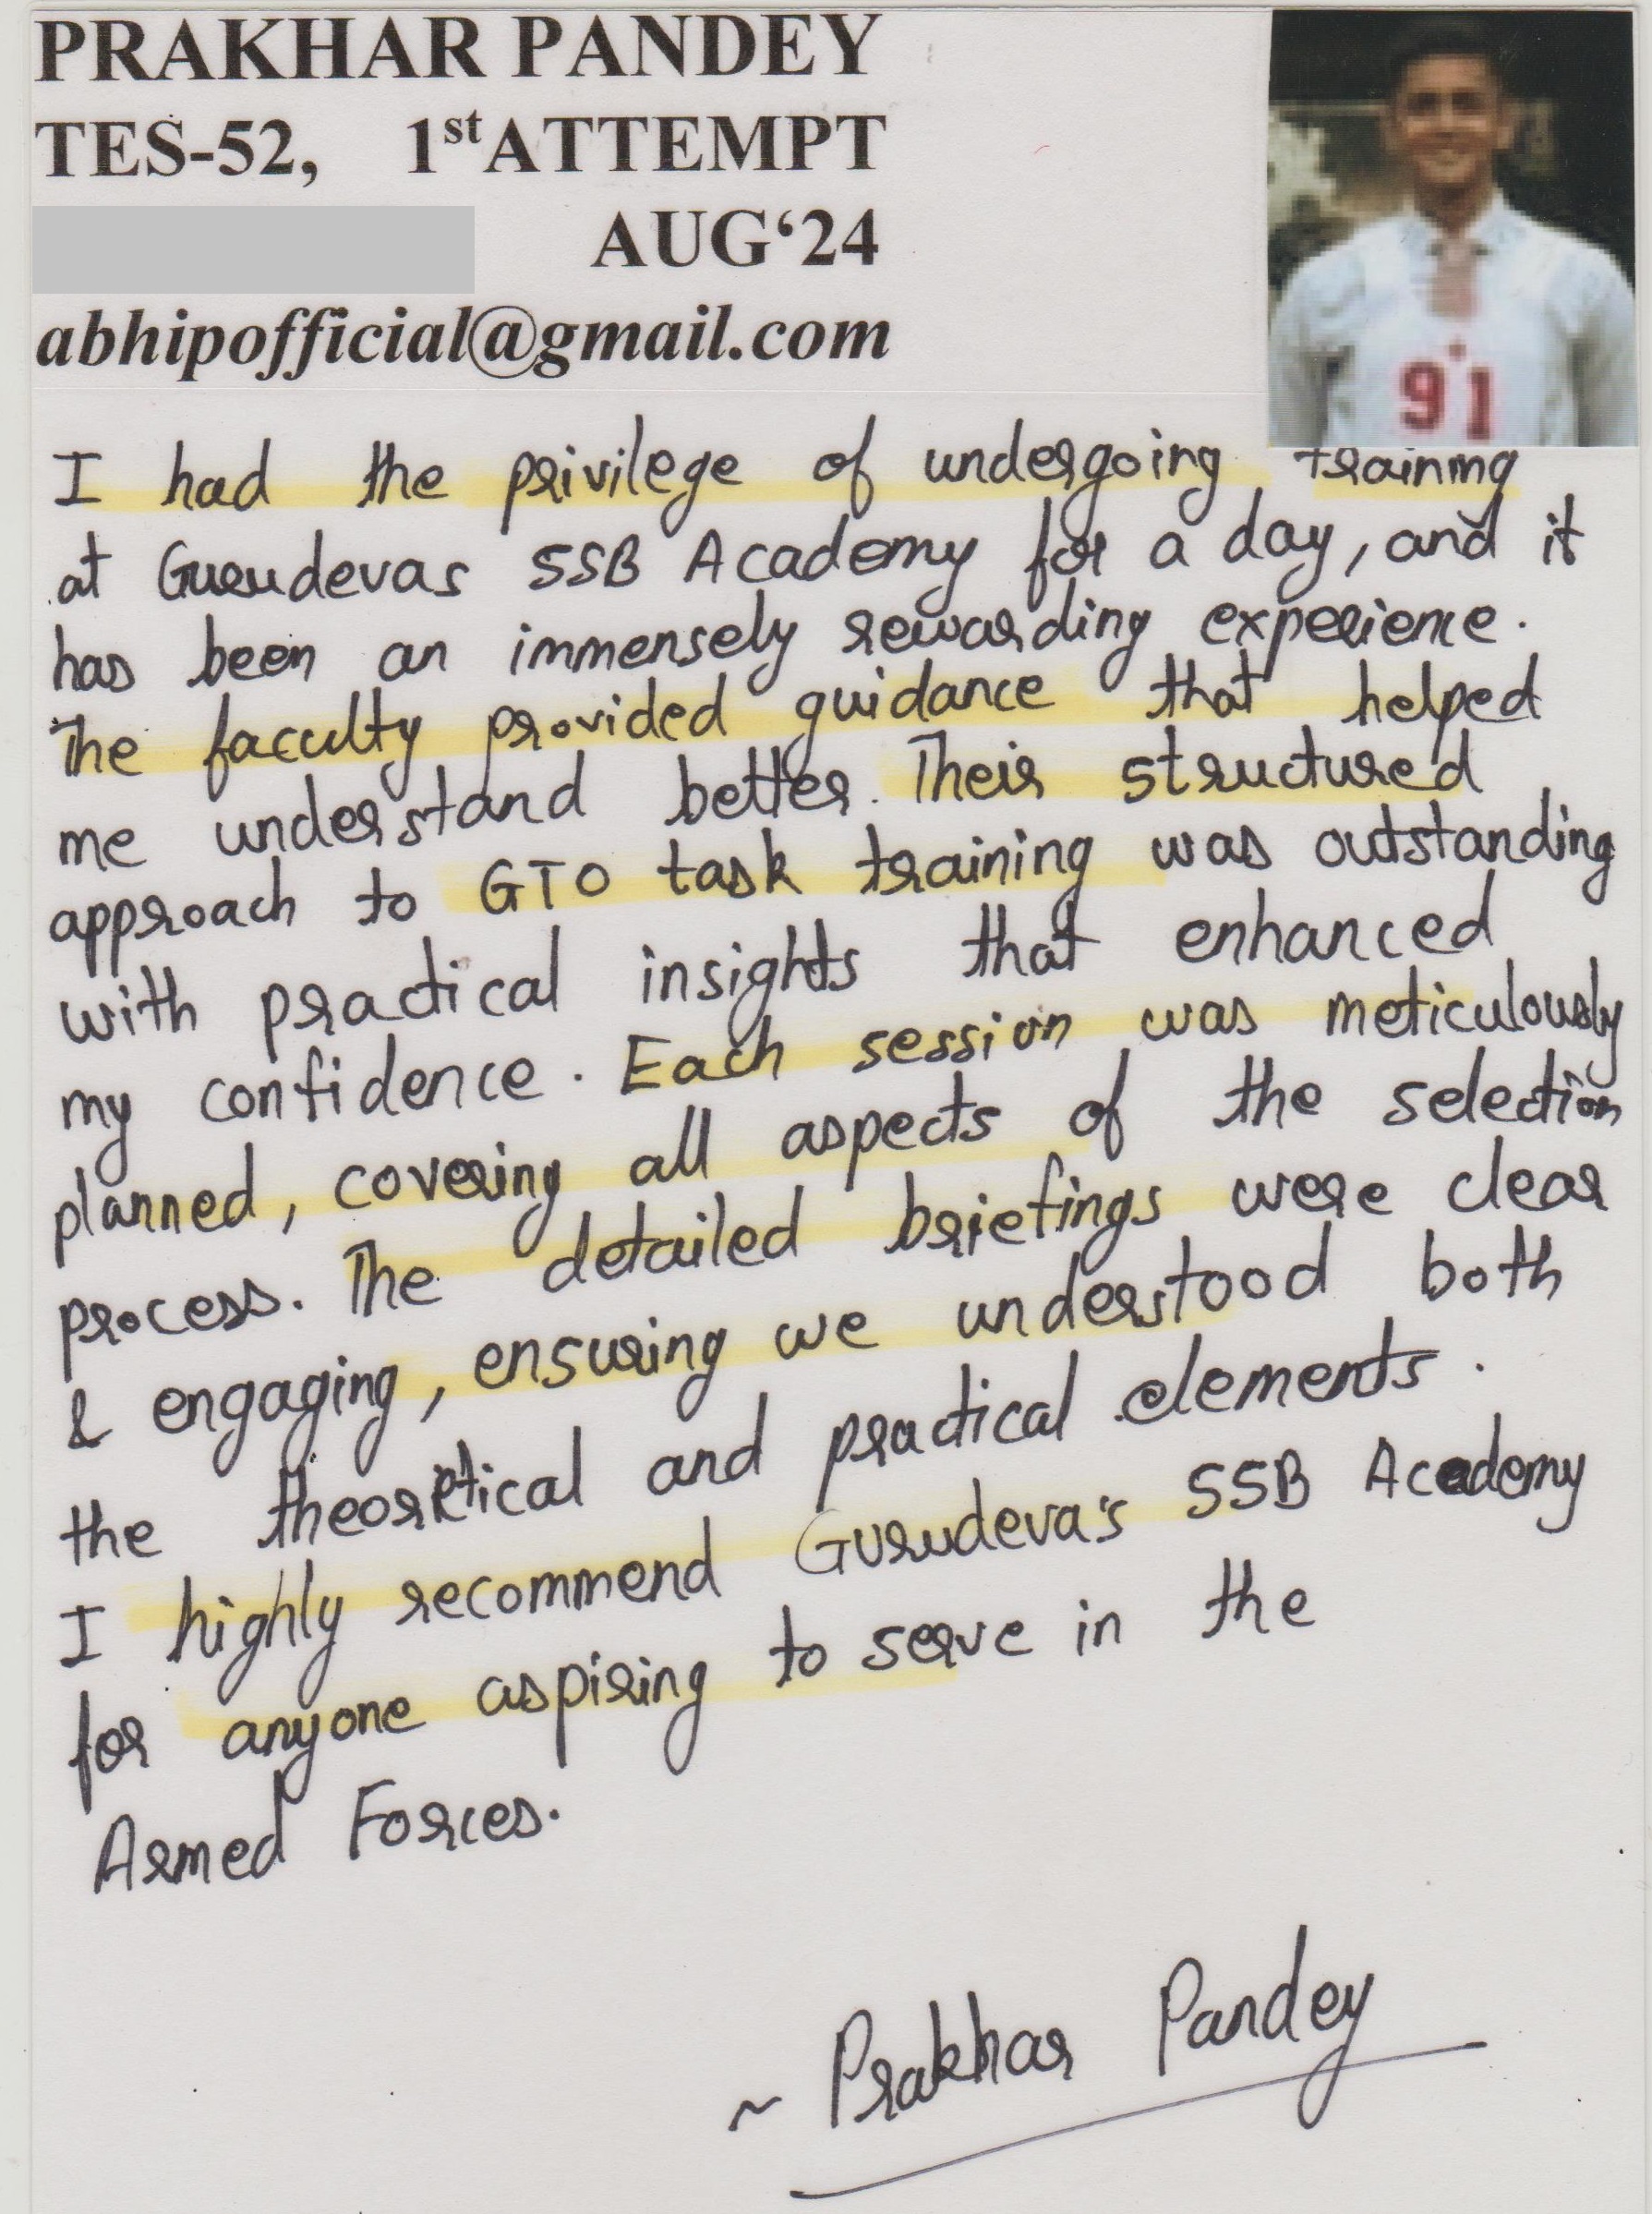 PRAKHAR PANDEY
TES-52, 1st ATTEMPT
AUG‘24
abhipofficial@gmail.com
91
I had the privilege of undergoing training
at Gurudevas SSB Academy for a day, and it
has been an immensely rewarding experience.
The faculty provided guidance that helped
me understand better. Their structured
approach to GTO task training was outstanding
with practical insights that enhanced
my confidence. Each session was meticulously
planned, covering all aspects of the selection
process. The detailed briefings were clear
& engaging, ensuring we understood both
the theoretical and practical elements.
I highly recommend Gurudeva's SSB Academy
for anyone aspiring to serve in the
Armed Forces.
~ Prakhar Pandey